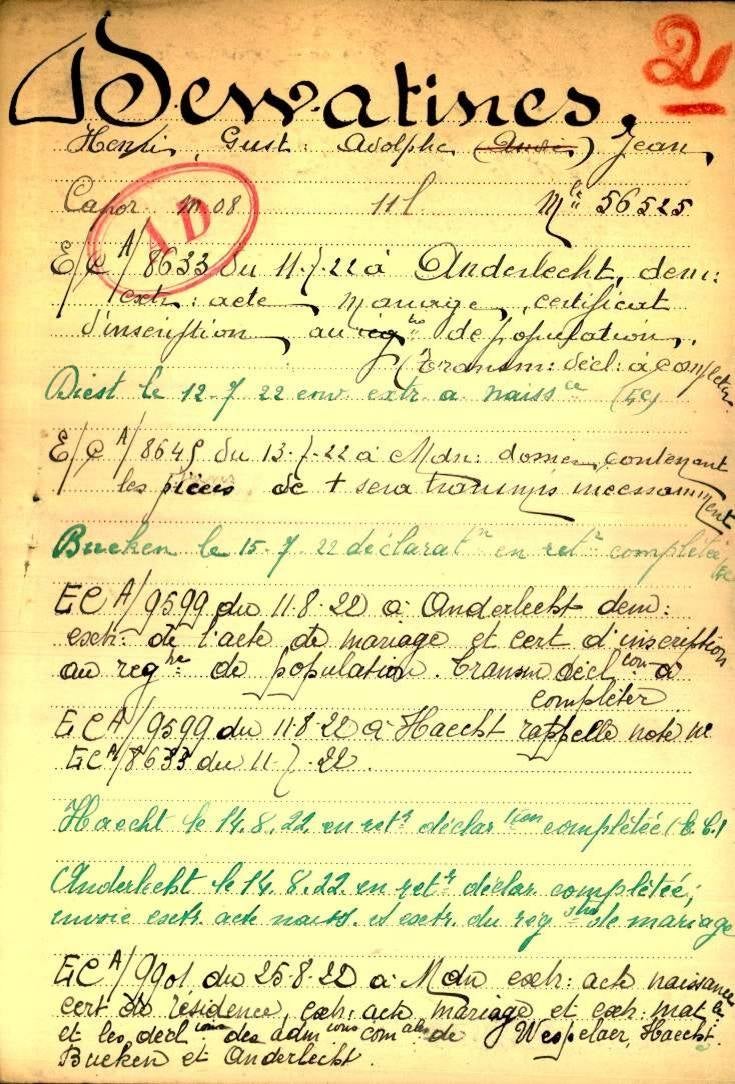 2
Dewatines.
Henri, Gust: Adolphe (Jean
Capor m 08 11 l Mle 56525
1D
E/C A/8633 du 11-7-22 à Anderlecht, dem:
extr: acte mariage, certificat
d'inscription au regtre de population.
(Transm: décl: à compléter
Diest le 12.7 22 env. extr. a naissce (EC)
E/C A/8645 du 13-7-22 à Mdn: dossier contenant
les pièces de + sera transmis incessamment
Bueken le 15.7 22 déclaratn en retr complétée EC
EC A/9599 du 11.8.22 à Anderlecht dem:
extr: de l'acte de mariage et cert d'inscription
au regtre de population. Transm déclion à
compléter
EC A/9599 du 11-8-22 à Haecht rappelle note no
EC A/8633 du 11-7-22.
Haecht le 14.8.22 en retr déclartion complétée (E.C.)
Anderlecht le 14.8.22 en retr déclar. complétée;
envoie extr. acte naiss. et extr. du regtre de mariage
EC A/9901 du 25-8-22 à Mdn extr: acte naissance
cert de résidence, extr: acte mariage et extr. matle
et les declions des admions comales de Wespelaer, Haecht
Bueken et Anderlecht.